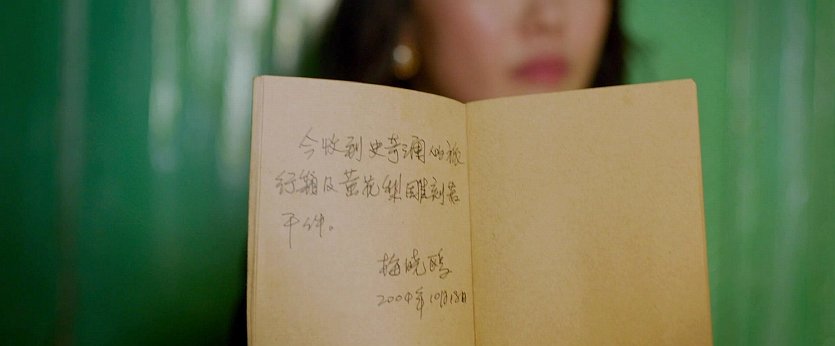 今收到史奇澜的旅
行箱及黄花梨雕刻若
干件。
梅晓鸥
2004年10月13日